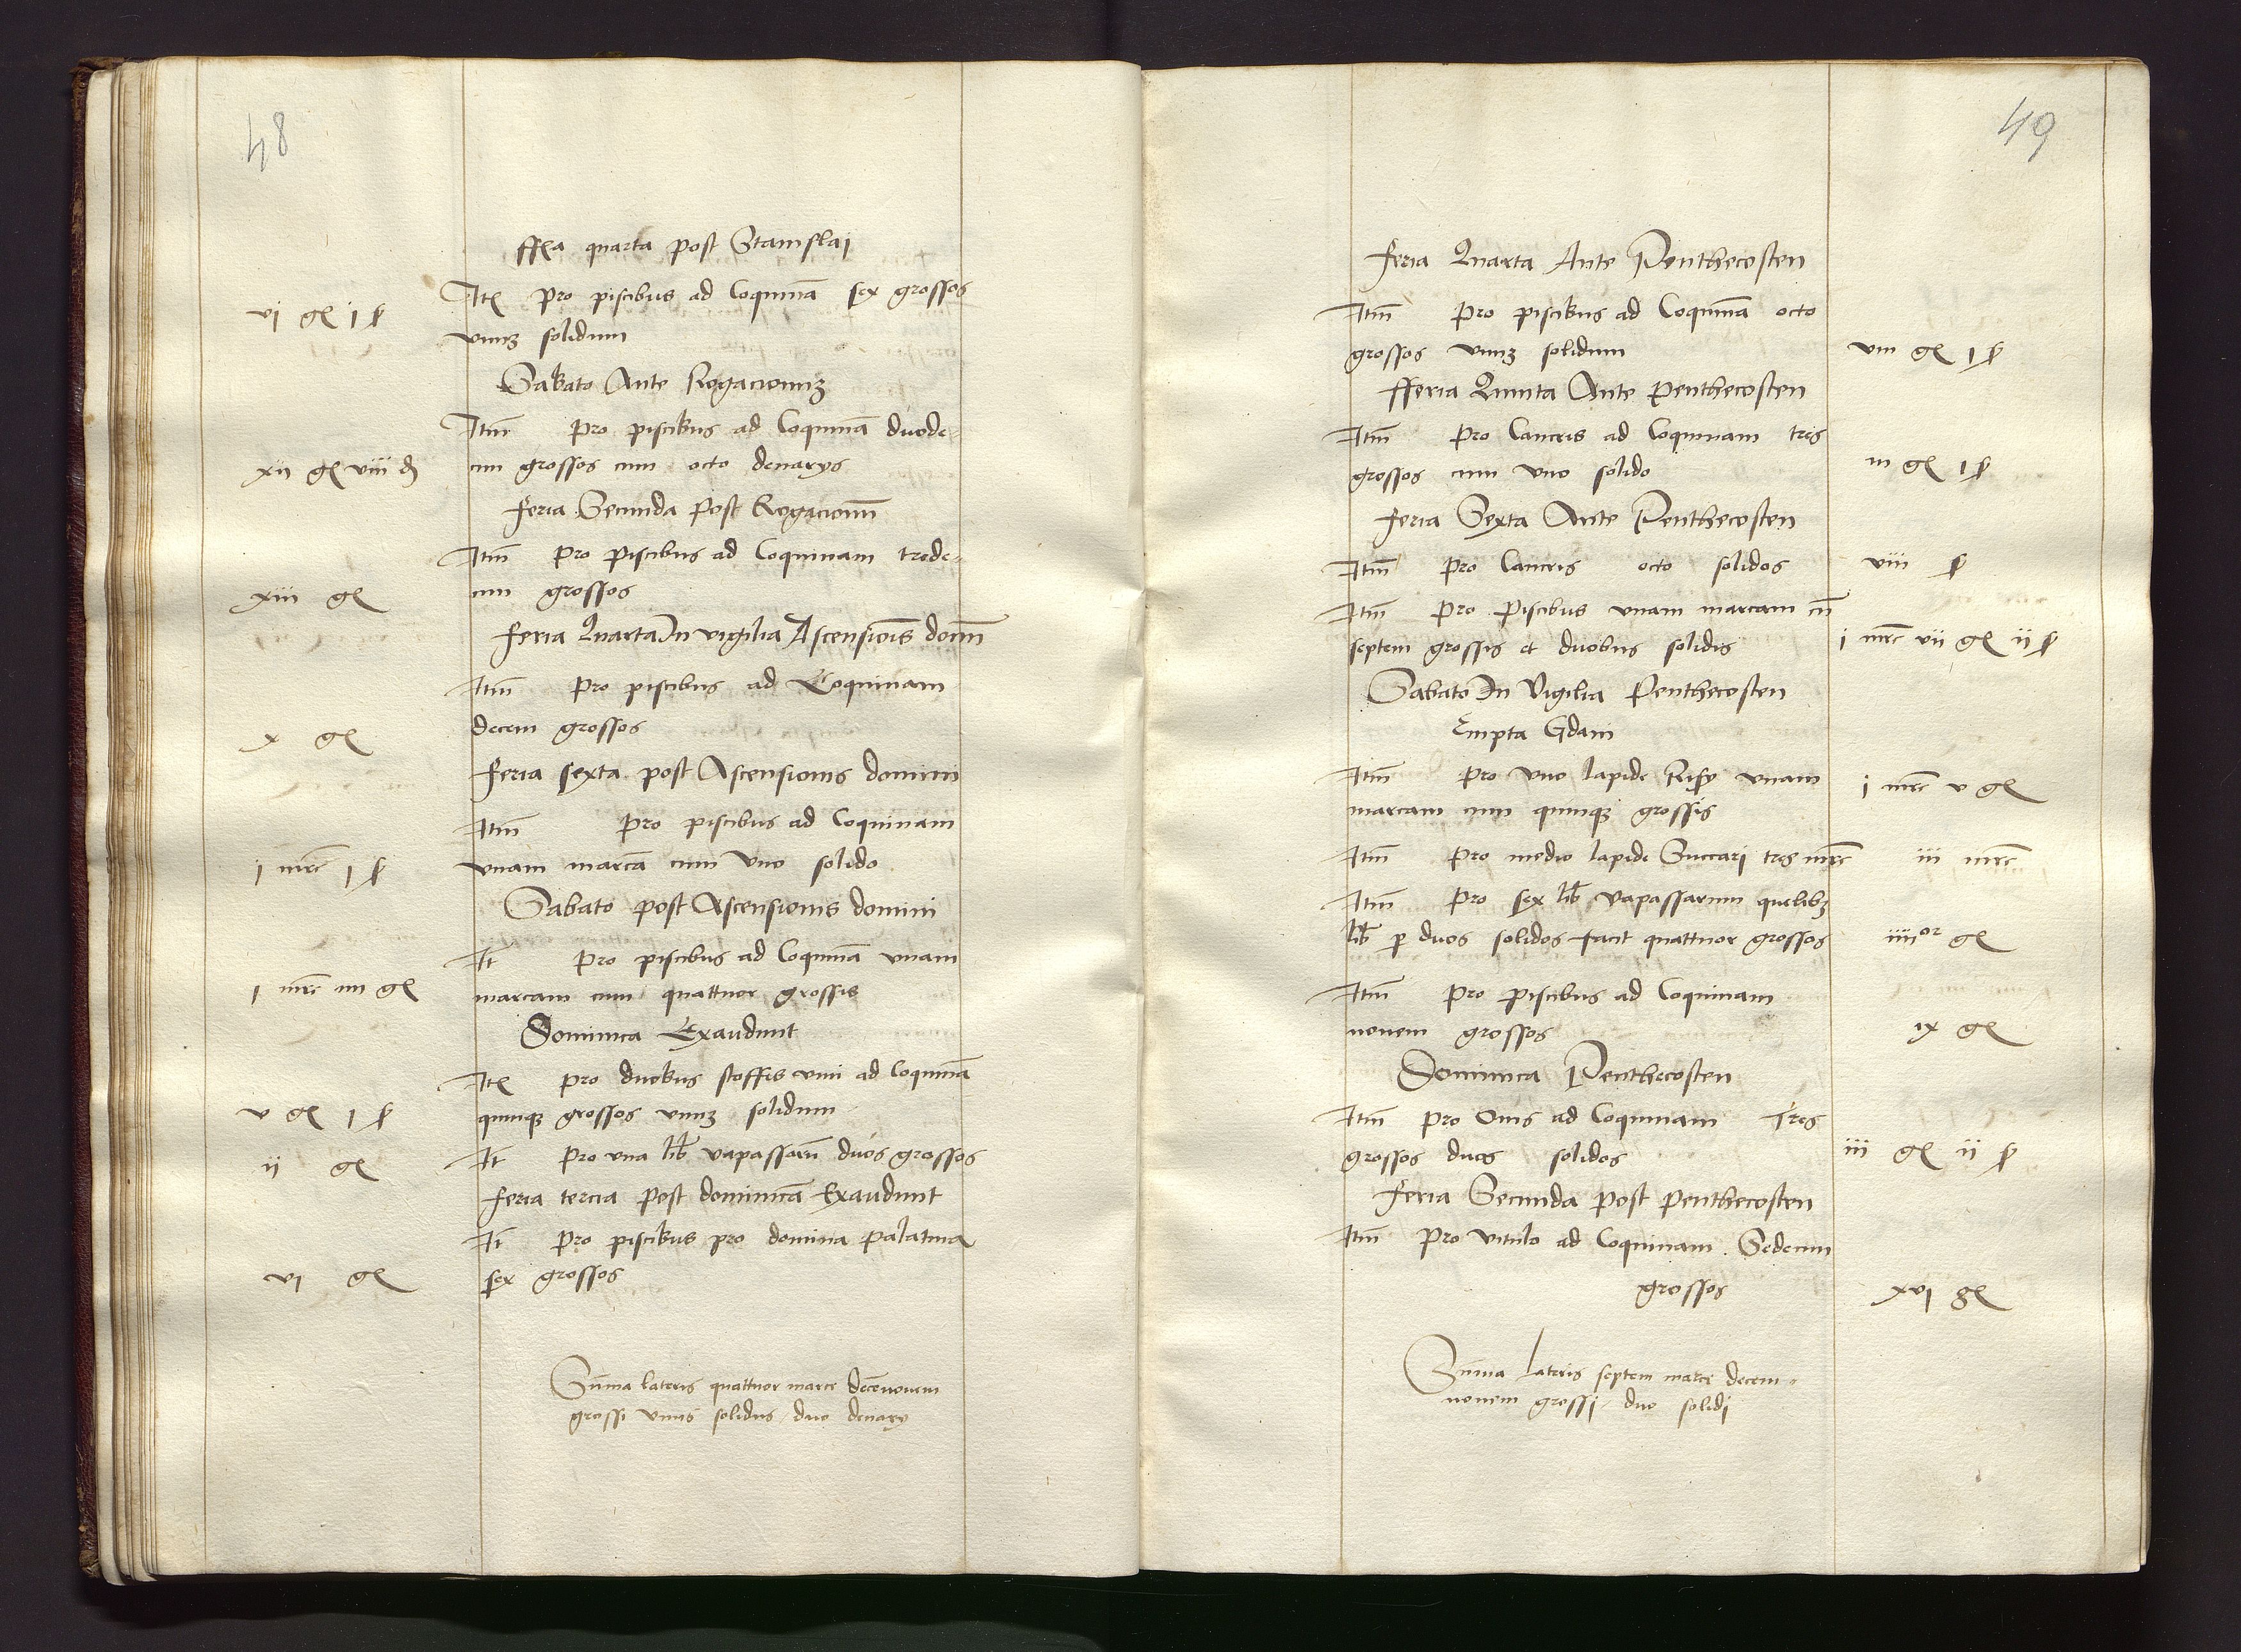 48
ffa quarta post Stanislai
Ite pro piscibus ad Coquinā sex grossos
vi gr i ſ
vnūʒ solidum
Sabato Ante Rogacionuʒ
Itm̄ pro piscibus ad Coquinā duode-
xii gr viii d
cim grossos cum octo denarys
Feria Secunda post Rogacionū
Itm̄ pro piscibus ad Coquinam trede-
xiii gr
cim grossos
Feria Quarta In vigilia Ascensiōis domī
Itm̄ pro piscibus ad Coquinam
x gr
decem grossos
Feria sexta post Ascensionis domini
Itm̄ pro piscibus ad Coquinam
i mrc i ſ
vnam marcā cum vno solido
Sabato post Ascensionis domini
It pro piscibus ad Coquinā vnam
i mrc iiii gr
marcam cum quattuor grossis
Dominica Exaudunt
Ite pro duobus stoffis vini ad Coquinā
v gr i ſ
quinqʒ grossos vnuʒ solidum
ii gr
It pro vna lib vapassarū duos grossos
Feria tercia post dominicā Exaudunt
It pro piscibus pro domina palatina
vi gr
sex grossos
Sūma lateris quattuor marce decēnouem
grossi vnus solidus duo denary
49
Feria Quarta Ante Penthecosten
Itm̄ pro piscibus ad Coquinā octo
grossos vnuʒ solidum
viii gr i ſ
fferia Quinta Ante penthecosten
Itm̄ pro Cancris ad Coquinam tris
grossos cum vno solido
iii gr i ſ
Feria Sexta Ante Penthecosten
Itm̄ pro Cancris octo solidos
viii ſ
Itm̄ pro piscibus vnam marcam cū
septem grossis et duobus solidis
i mrc vii gr ii ſ
Sabato In Vigilia Penthecosten
Empta Gdani
Itm̄ pro vno lapide Risy vnam
i mrc v gr
marcam cum quinqʒ grossis
Itm̄ pro medio lapide Succari tres mrc
iii mrc
Itm̄ pro sex lib vapassarum quelibʒ
lib p duos solidos facit quattuor grossos
iiii or gr
Itm̄ pro piscibus ad Coquinam
nouem grossos
ix gr
Dominica Penthecosten
Itm̄ pro Ouis ad Coquinam Tres
grossos duos solidos
iii gr ii ſ
Feria Secunda post penthecosten
Itm̄ pro vitulo ad Coquinam Sedecim
grossos
xvi gr
Sūma Lateris septem marce decem-
nouem grossi duo solidi